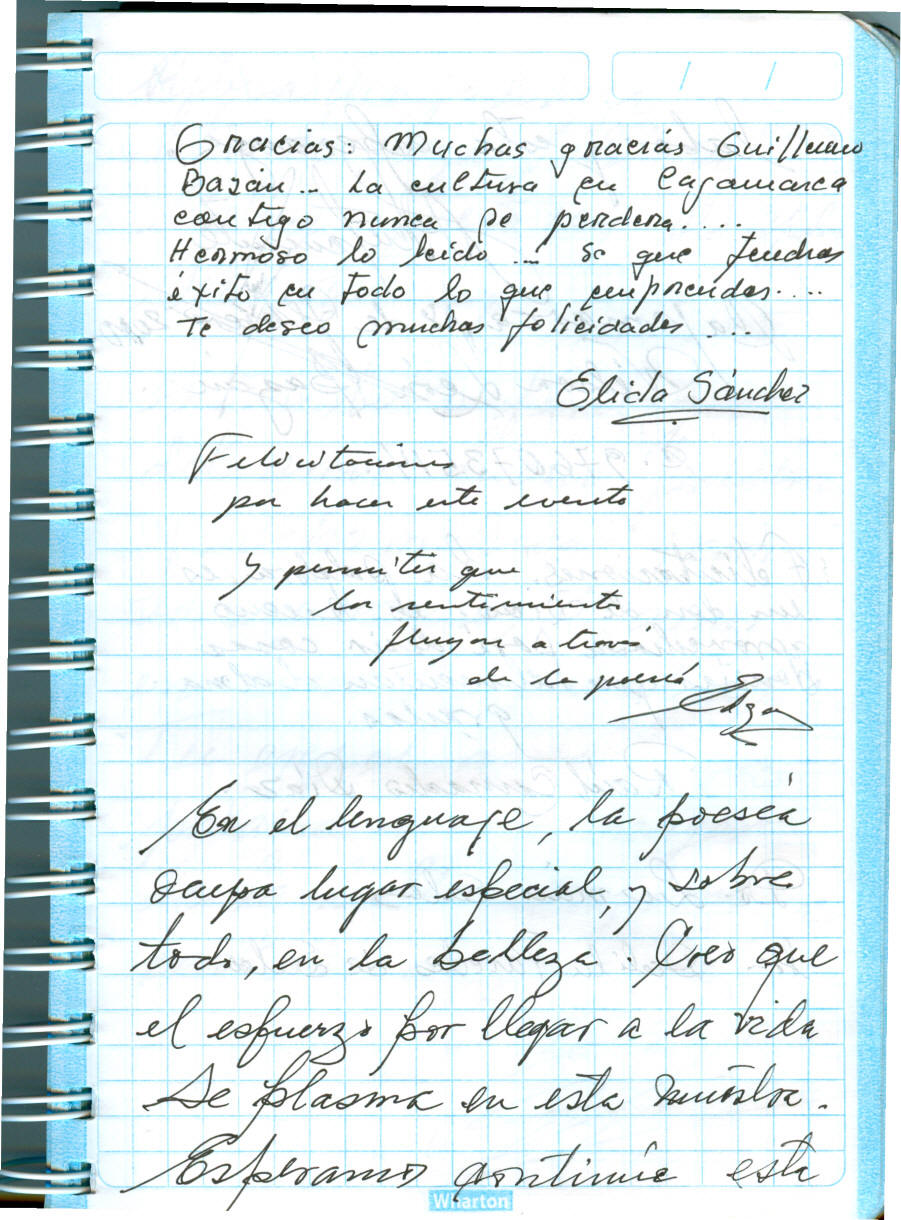 Gracias: Muchas gracias Guillermo
Bazán... La cultura en Cajamarca
contigo nunca se perdera....
Hermoso lo leído ... Se que tendras
éxito en todo lo que emprendas....
Te deseo muchas felicidades ....
Elida Sánchez
Felicitaciones
por hacer este evento
y permitir que
los sentimientos
fluyan a través
de la poesía
En el lenguaje, la poesía
ocupa lugar especial, y sobre
todo, en la belleza. Creo que
el esfuerzo por llegar a la vida
se plasma en esta muestra.
Esperamos continúe esta
Wharton